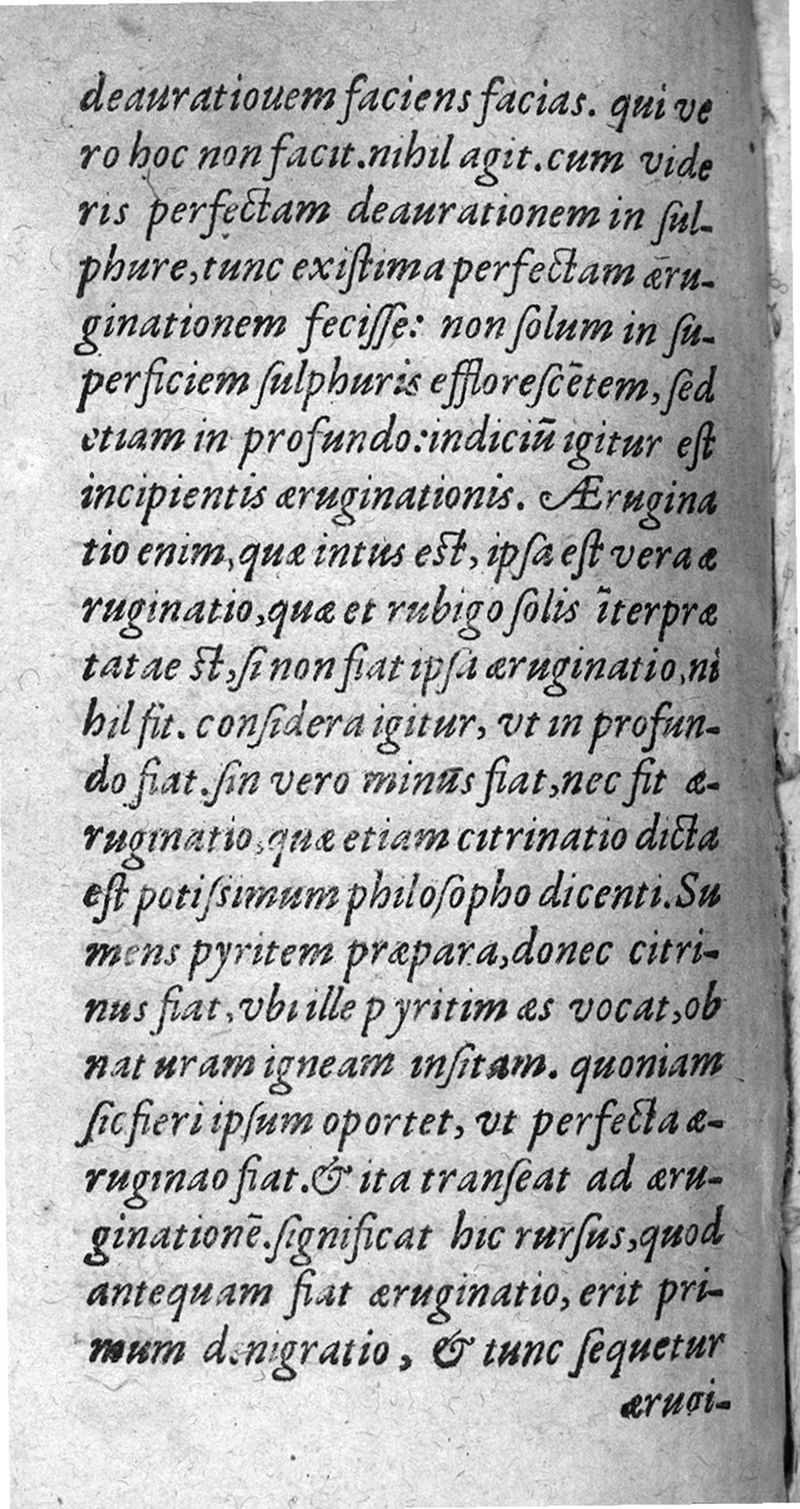 deauratiouem faciens facias. qui ve
ro hoc non facit.nihil agit.cum vide
ris perfectam deaurationem in ſul-
phure,tunc exiſtima perfectam æru-
ginationem feciſſe: non ſolum in ſu-
perficiem ſulphuris effloreſcētem,ſed
etiam in profundo:indiciū igitur eſt
incipientis æruginationis. Ærugina
tio enim,quæ intus est, ipſa eſt vera æ
ruginatio,quæ et rubigo ſolis īterpræ
tatae st,ſi non fiat ipſa æruginatio,ni
hil fit. conſidera igitur, vt in profun-
do fiat.ſin vero minūs fiat,nec fit æ-
ruginatio,quæ etiam citrinatio dicta
eſt potiſsimum philoſopho dicenti.Su
mens pyritem præpara,donec citri-
nus fiat,vbi ille pyritim æs vocat,ob
naturam igneam inſitam. quoniam
ſic fieri ipſum oportet, vt perfecta æ-
ruginao fiat.& ita tranſeat ad æru-
ginationē.ſignificat hic rurſus,quod
antequam fiat æruginatio, erit pri-
mum denigratio, & tunc ſequetur
ærugi-